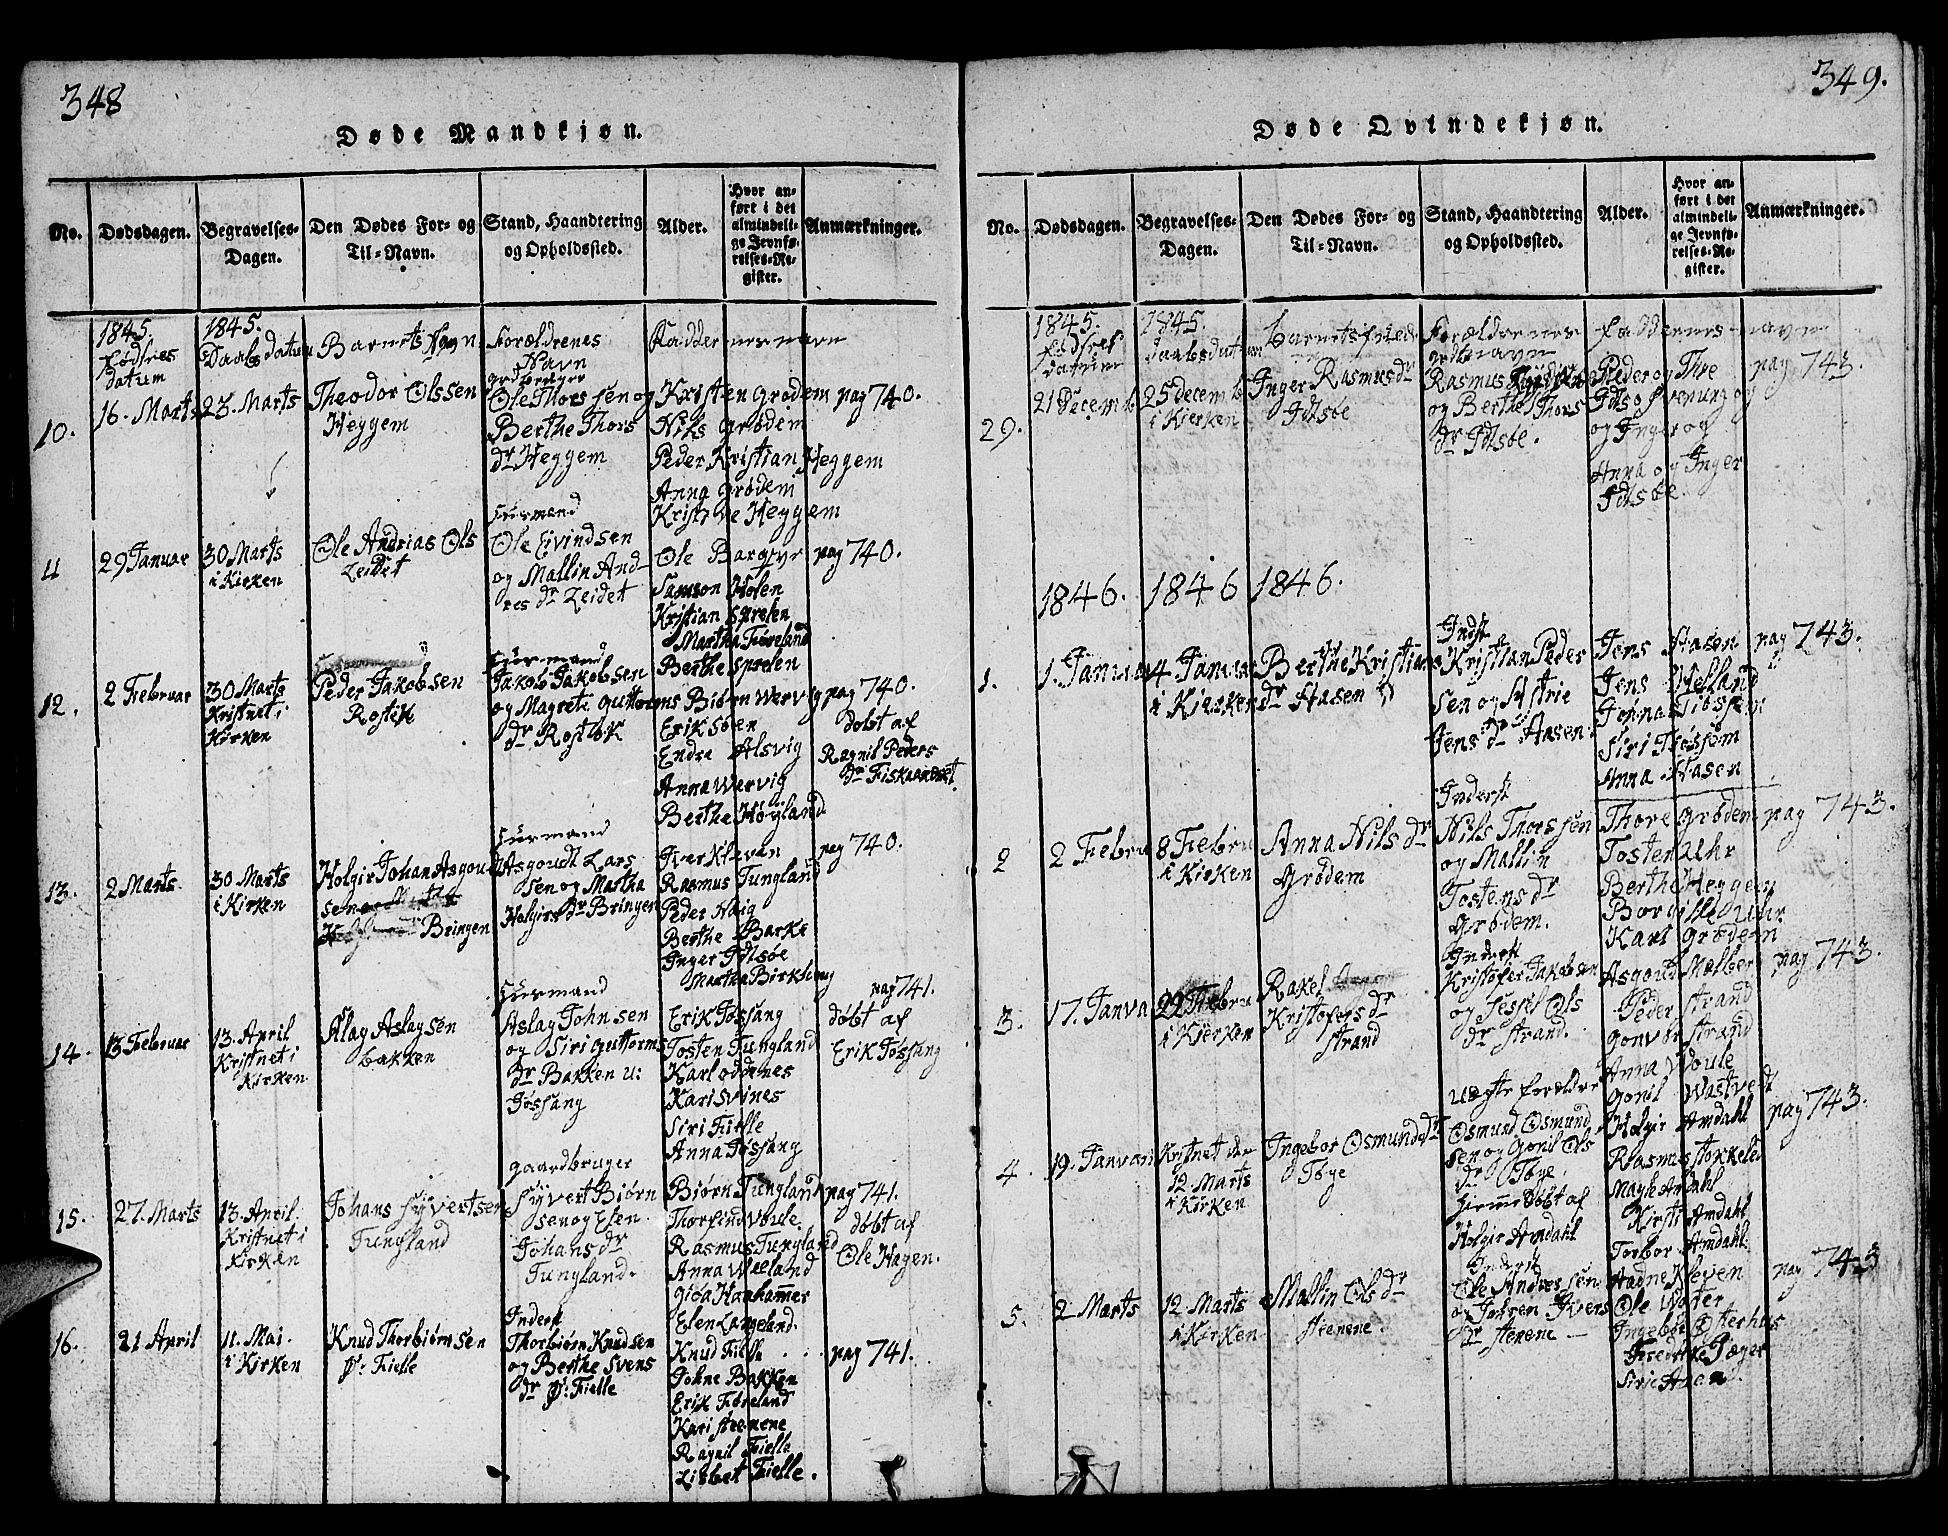 348
Døde Mandkjøn.
No.
Dødsdagen.
Begravelses-
Dagen.
Den Dødes For- og
Til-Navn.
Stand, Haandtering
og Opholdssted.
Alder.
Hvor an-
ført i det
almindeli-
ge Jevnfø-
relses-Re-
gister.
Anmærkninger.
1845.
Fødsels
datum
1845.
Daabs datum
Barnets Navn
Forældrenes
Navn
Faddernes navn
10.
16. Marts
23. Marts
Theodor Olssen
Heggem
grdbruger
Ole Thorssen og
Berthe Thors
dr Heggem
Kristen Grødem
Nils Grødem
Peder Kristian Heggem
Anna Grødem
Kristine Heggem
pag 740.
11
29 Januar
30 Marts
i Kirken
Ole Andrias Ols
Leidet
Huusmand
Ole Eivindsen
og Mallin And
res dr Leidet
Ole Bargyr
Samson Holen
Kristian Sprelen
Martha Føreland
Berthe Sprelen
pag 740.
12.
2 Februar
30 Marts
Kristnet i
Kirken
Peder Jakobsen
Rostøk
Huusmand
Jakob Jakobsen
og Magrete Guttorms
dr Rostøk
Biørn Wervig
Erik Søen
Endre Alsvig
Anna Wervig
Berthe Høyland
pag 740.
døbt af
Ragnil Peders
dr Fiskaandset.
13.
2 Marts
30 Marts
i Kirken
Holgir Johan Asgoud
sen
Bringen
Huusmand
Asgoudt Lars
sen og Martha
Holgirs dr Bringen
Iver Kleven
Rasmus Tungland
Peder Haig
Berthe Barke
Inger Idtsøe
Martha Birkeland
pag 740.
14.
13 Februar
13. April
Kristnet i
Kirken
Aslag Aslagsen
bakken
Huusmand
Aslag Johnsen
og Siri Guttorms
dr Bakken u:
Jøssang
Erik Jøssang
Tosten Tungland
Karl oddenes
Kari Svines
Siri Fielle
Anna Jøssang
pag 741.
døbt af
Erik Jøssang
15.
27. Marts
13. April.
Kristnet i
Kirken
Johans Syvertsen
Tungland
gaardbruger
Syvert Biørn
sen og Elen
Johans dr
Tungland.
Biørn Tungland
Thorfind Voule
Rasmus Tungland
Anna Wæland
Gida Haahammer
Elen Langeland.
pag 741.
døbt af
Ole Hagen.
16.
21 April
11. Mai.
i Kirken
Knud Thorbiørnsen
Ø: Fielle
Inderst
Thorbiørn Knudsen
og Berthe Svens
dr Ø: Fielle
Knud Fielle
Gohne Bakken
Erik Føreland
Kari Steenene
Ragnil Fielle
Lisbet Fielle.
pag 741.
349.
Døde Qvindekjøn.
No.
Dødsdagen.
Begravelses-
Dagen.
Den Dødes For- og
Til-Navn.
Stand, Haandtering
og Opholdssted.
Alder.
Hvor an-
ført i det
almindeli-
ge Jevnfø-
relses-Re-
gister.
Anmærkninger.
1845.
Fødsels
datum
1845.
daabsdatum
Barnets fulde
Forældrenes
navn
Faddernes navn
29.
21 Decemb
25 decemb
i Kierken
Inger Rasmusdr
Idtsøe
Rasmus
og Berthe Thors
dr Idtsøe.
Peder og Thre
Idtsø
og Inger og
Anna og Inger
Idtsøe.
pag 743.
1846.
1846
1846.
1.
1. Januar
4 Januar
i Kierken
Berthe Kristians
dr Aasen
Indst
Kristian Peder
sen og Astrie
Jens dr Aasen.
Jens Aasen
Jens Hefland
Johna Tiøssem
Siri Tiøssem
Anna Aasen
pag 743.
2
2 Febru
8 Febru
i Kirken
Anna Nils dr
Grødem
Inderst
Nils Thorssen
og Mallin
Tostens dr
Grødem.
Thore Grødem
Tosten Uhr
Berthe Heggem
Borgille Uhr
Karl Grødem
pag 743.
3.
17. Janva
22 Febru
i Kierken
Rakel
Kristofers dr
Strand
Inderst
Kristofer Jakobsen
og Sessel Ols
dr Strand.
Asgoud Mælber
Peder Strand
Gonvor Strand
Anna Voule
Gonil Wastvedt
pag 743.
4.
19. Janvari
Kristnet den
12. Marts
i Kirken
Ingebor Osmundsdr
Tøge
Uægte forældre
Osmund Osmund
sen og Gonil Ols
dr Tøge.
hiemmedøbt af
Holgir Amdahl
Holgir Amdahl
Rasmus Stokkeled
Magle Amdahl
Kirsti Amdahl
Torbor Amdahl.
pag 743.
5.
2 Marts
12 Marts
i Kirken
Mallin Ols dr
Steenene.
Inderst
Ole Andressen
og Jøren Ivers
dr Steenene
Aadne Kleven
Ole Woster
Ingebor Osterhus
Fredrike Jæger
Sirie Aaen.
pag 743